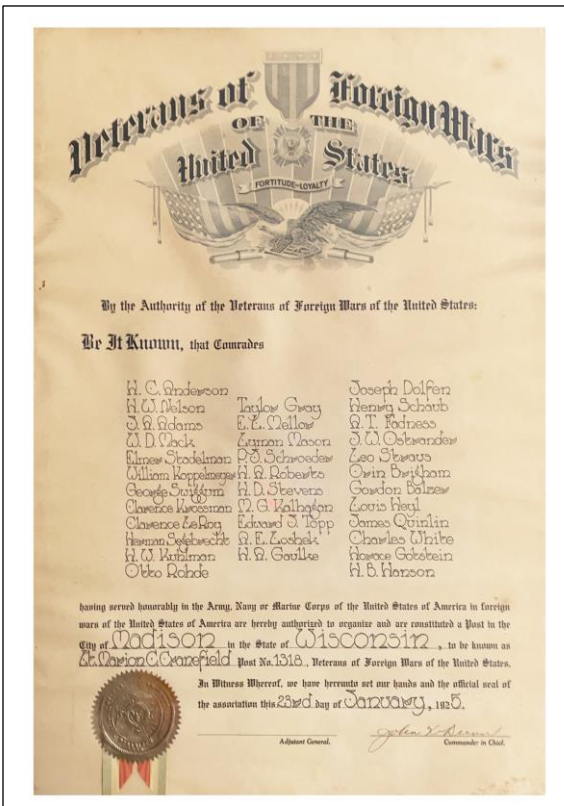 Veterans of Foreign Wars
OF THE
United States
FORTITUDE-LOYALTY
By the Authority of the Veterans of Foreign Wars of the United States:
Be It Known, that Comrades
H. C. Anderson
H. W. Nelson
J. A. Adams
W. D. Mack
Elmer Stadelman
William Koppelmeyer
George Swiggum
Clarence Krossman
Clarence LeRoy
Herman
H. W. Kuhlman
Otto Rohde
Taylor Gray
E. E. Mellor
Lyman Mason
P. J. Schroeder
H. A. Roberts
H. D. Stevens
M. G. Kalhagan
Edward J. Topp
A. E. Loshek
H. A. Gaulke
Joseph Dolfen
Henry Schaub
A. T. Fadness
J. W. Ostrander
Leo Straus
Orin Brigham
Gordon Balzer
Louis Heyl
James Quinlin
Charles White
Horace Gotstein
H. B. Hanson
having served honorably in the Army, Navy or Marine Corps of the United States of America in foreign
wars of the United States of America are hereby authorized to organize and are constituted a Post in the
City of Madison in the State of Wisconsin, to be known as
Lt. Marion C. Cranefield Post No. 1318, Veterans of Foreign Wars of the United States.
In Witness Whereof, we have hereunto set our hands and the official seal of
the association this 23rd day of January, 1925.
Adjutant General.
John
Commander in Chief.